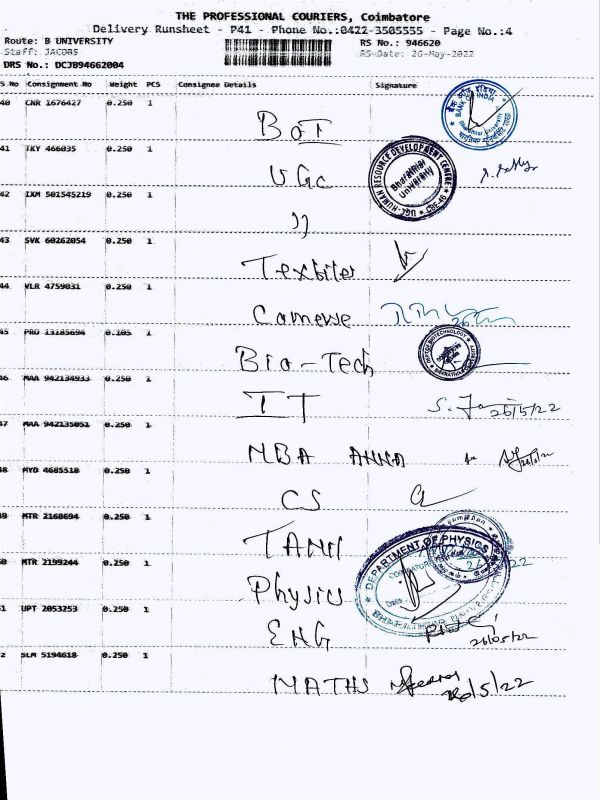 THE PROFESSIONAL COURIERS, Coimbatore
Delivery Runsheet - P41 - Phone No.:0422-3505555 - Page No.:4
Route: B UNIVERSITY
RS No.: 946620
Staff: JACOBS
RS-Date: 26-May-2022
DRS No.: DCJB94662004
S No Consignment No Weight PCS Consignee Details Signature
40 CNR 1676427 0.250 1
BOI
BANK OF INDIA
41 TKY 466035 0.250 1
UGC
UGC-HUMAN RESOURCE DEVELOPMENT CENTRE
Bharathiar University
CBE-46
42 IXM 501545219 0.250 1
"
43 SVK 60262054 0.250 1
Textiles
44 VLR 4759031 0.250 1
Comerse
45 PRO 13185694 0.105 1
Bio-Tech
46 MAA 942134933 0.250 1
IT
26/5/22
47 MAA 942135051 0.250 1
MBA ANNA
48 MYD 4685518 0.250 1
CS
49 MTR 2168694 0.250 1
TAMil
DEPARTMENT OF PHYSICS
50 MTR 2199244 0.250 1
Physics
51 UPT 2053253 0.250 1
ENG
26/05/22
52 SLM 5194618 0.250 1
MATHS
26/5/22